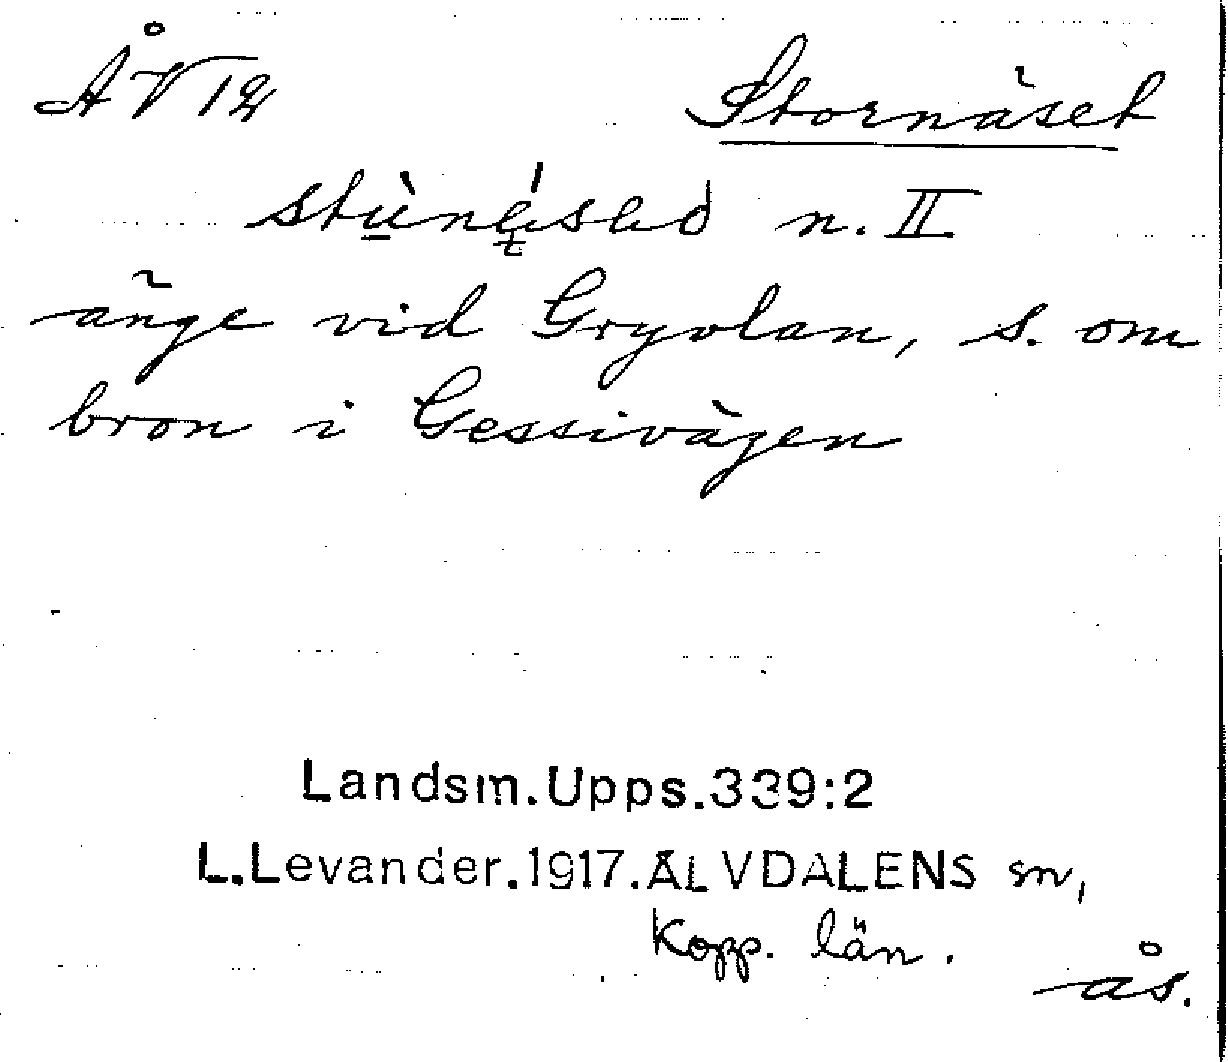 ÅV12 Stornäset
n. II
änge vid Gryvlan, s. om
bron i Gessivägen
Landsm.Upps.339:2
L.Levander.1917.ÄLVDALENS sn,
Kopp. län.
ås.